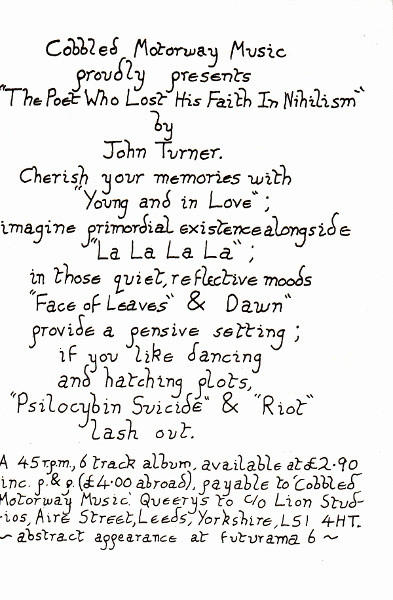 Cobbled Motorway Music
proudly presents
"The Poet Who Lost His Faith In Nihilism"
by
John Turner.
Cherish your memories with
"Young and in Love";
imagine primordial existence alongside
"La La La La";
in those quiet, reflective moods
"Face of Leaves" & Dawn"
provide a pensive setting;
if you like dancing
and hatching plots,
"Psilocybin Suicide" & "Riot"
lash out.
A 45 r.p.m., 6 track album, available at £2.90
inc. p. & p. (£4.00 abroad), payable to 'Cobbled
Motorway Music.' Querys to c/o Lion Stud-
-ios, Aire Street, Leeds, Yorkshire, LS1 4HT.
~ abstract appearance at futurama 6 ~